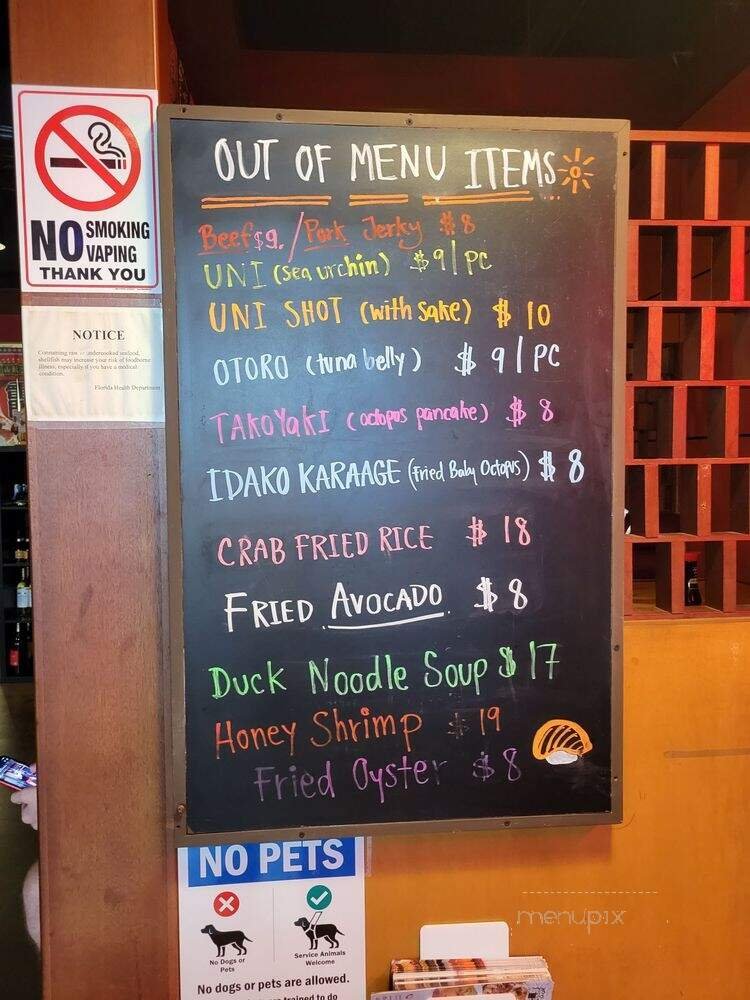 NO SMOKING
VAPING
THANK YOU
NOTICE
Consuming raw or undercooked seafood,
shellfish may increase your risk of foodborne
illness, especially if you have a medical
condition.
Florida Health Department
OUT OF MENU ITEMS
Beef $9. / Pork Jerky $8
UNI (sea urchin) $9/PC
UNI SHOT (with sake) $10
OTORO (tuna belly) $9/PC
TAKOYAKI (octopus pancake) $8
IDAKO KARAAGE (Fried Baby Octopus) $8
CRAB FRIED RICE $18
FRIED AVOCADO $8
Duck Noodle Soup $17
Honey Shrimp $19
Fried Oyster $8
NO PETS
No Dogs or
Pets
Service Animals
Welcome
No dogs or pets are allowed.
are trained to do
menupix